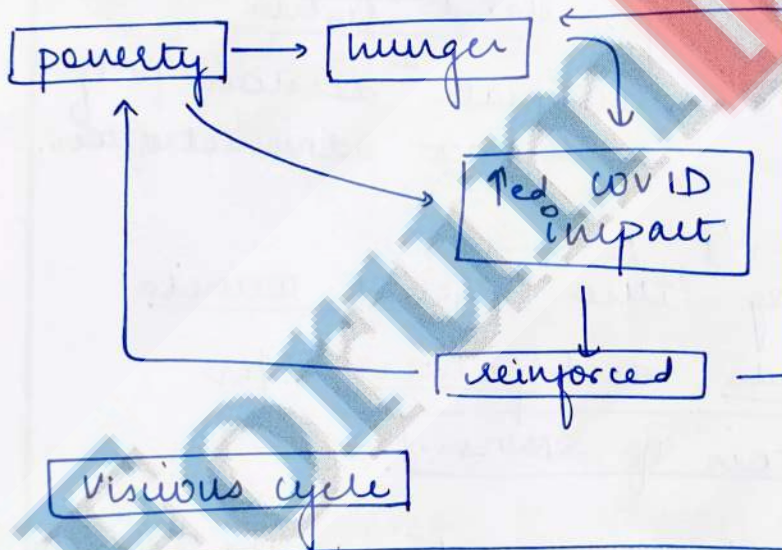 poverty
hunger
↑ed COVID
impact
reinforced
Viscious cycle
Forum